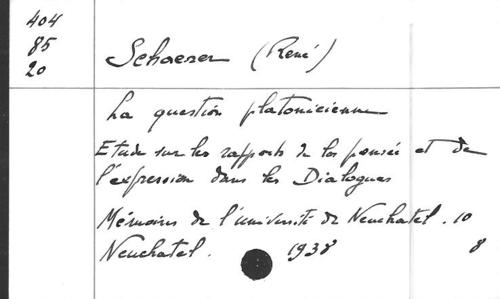 404
85
20
Schaerer (René)
La question platonicienne
Etude sur les rapports de la pensée et de
l'expression dans les Dialogues
Mémoires de l'université de Neuchatel. 10
Neuchatel. 1938 8